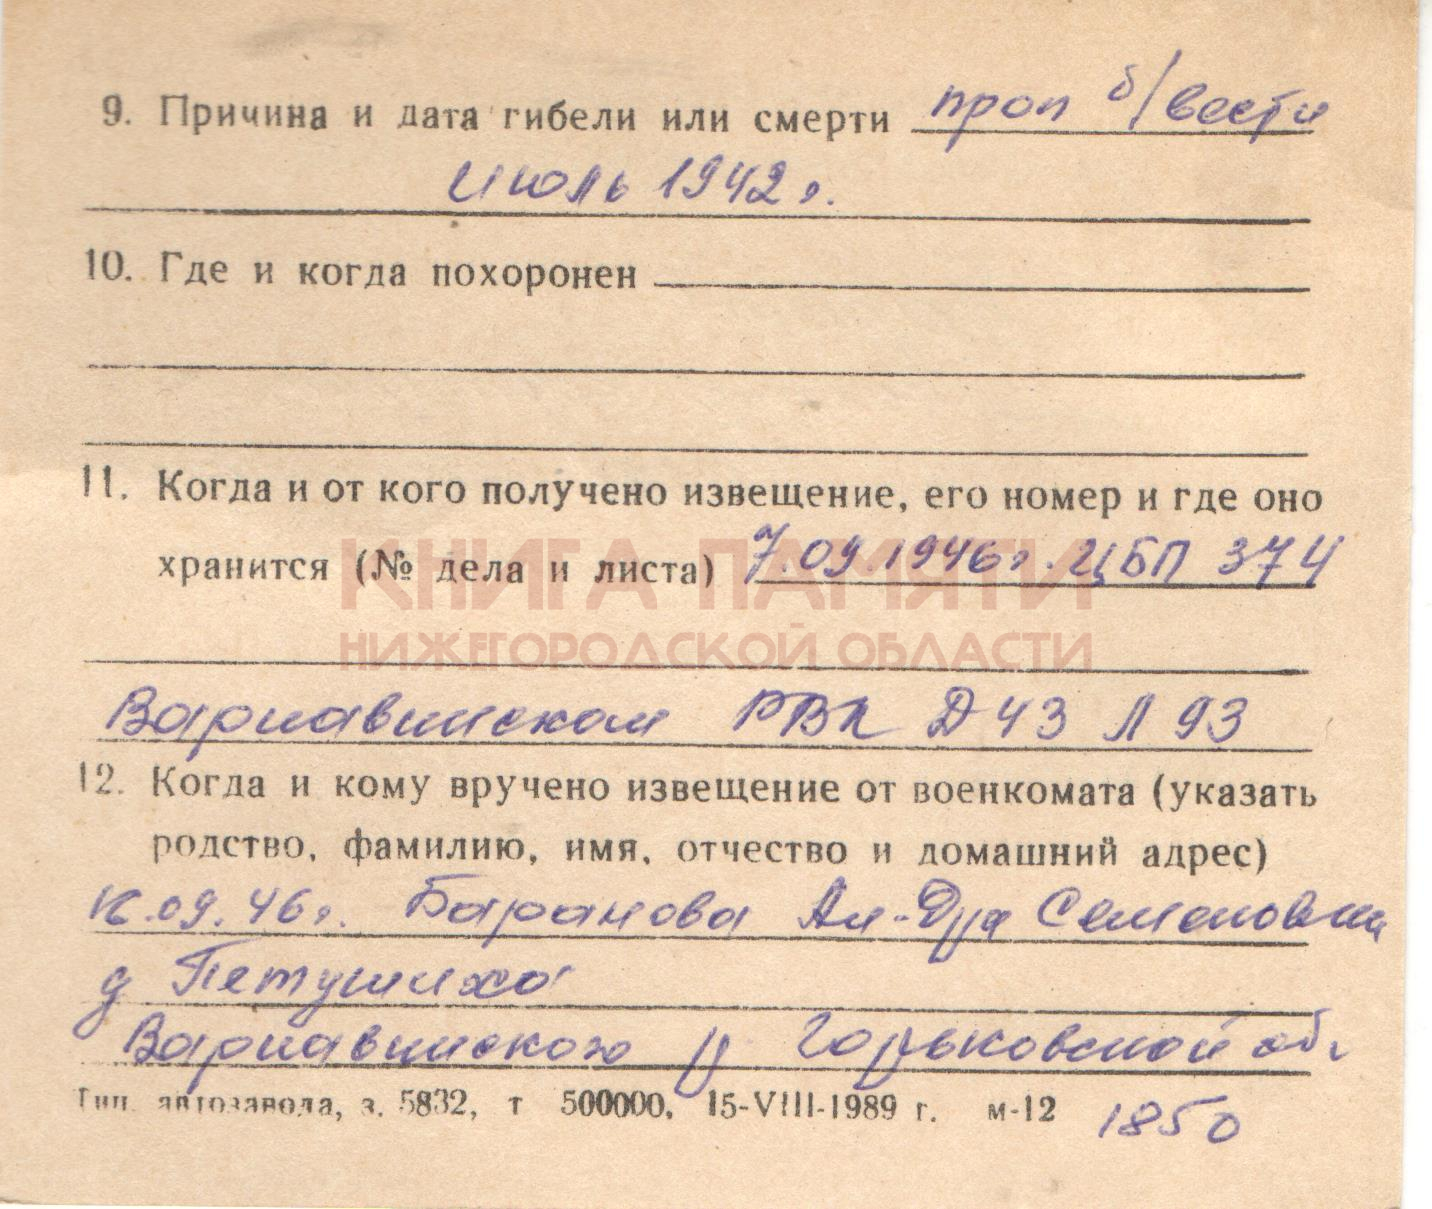 9. Причина и дата гибели или смерти проп б/вести
июль 1942 г.
10. Где и когда похоронен
11. Когда и от кого получено извещение, его номер и где оно
хранится (№ дела и листа) 7.09.1946г. ЦБП 374
КНИГА ПАМЯТИ
НИЖЕГОРОДСКОЙ ОБЛАСТИ
Варнавинском РВК Д 43 Л 93
12. Когда и кому вручено извещение от военкомата (указать
родство, фамилию, имя, отчество и домашний адрес)
09.46г. Баранова Ал-Дра Семеновна
д Петушиха
Варнавинского р Горьковской об.
Тип. автозавода, з. 5832, т 500000, 15-VIII-1989 г. м-12 1850